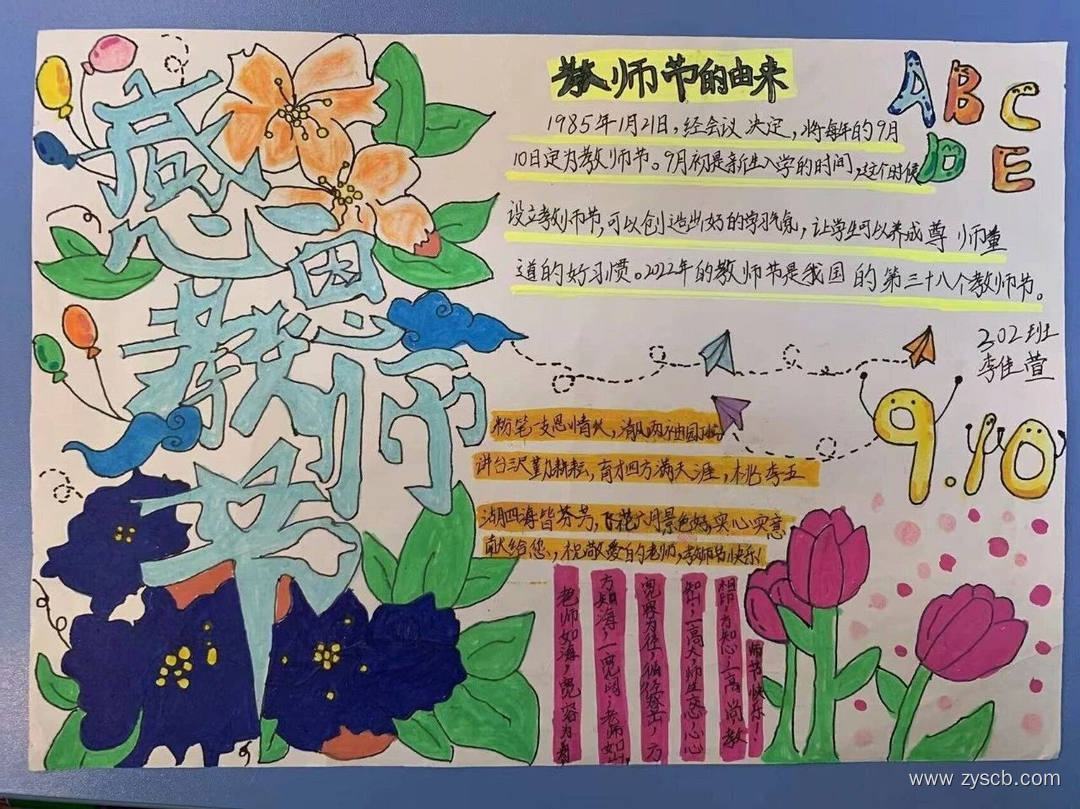 感恩教师节
教师节的由来
1985年1月21日,经会议决定,将每年的9月
10日定为教师节。9月初是新生入学的时间,这个时候
设立教师节,可以创造出好的学习气氛,让学生可以养成尊师重
道的好习惯。2022年的教师节是我国的第三十八个教师节。
A B C
D E
202班
李佳萱
9.10
粉笔一支恩情久,清风两袖
讲台三尺勤耕耘,育才四方满天涯,桃李五
湖四海皆芬芳,飞花六月景色好,实心实意
献给您,祝敬爱的老师,教师节快乐!
老师如海,宽容为
方知海,一宽阔,老师如山
宽容为径,循径登山,方
知山,一高大,师生交心,心心
相印,方知心,一高尚,教
师节快乐!
www.zyscb.com